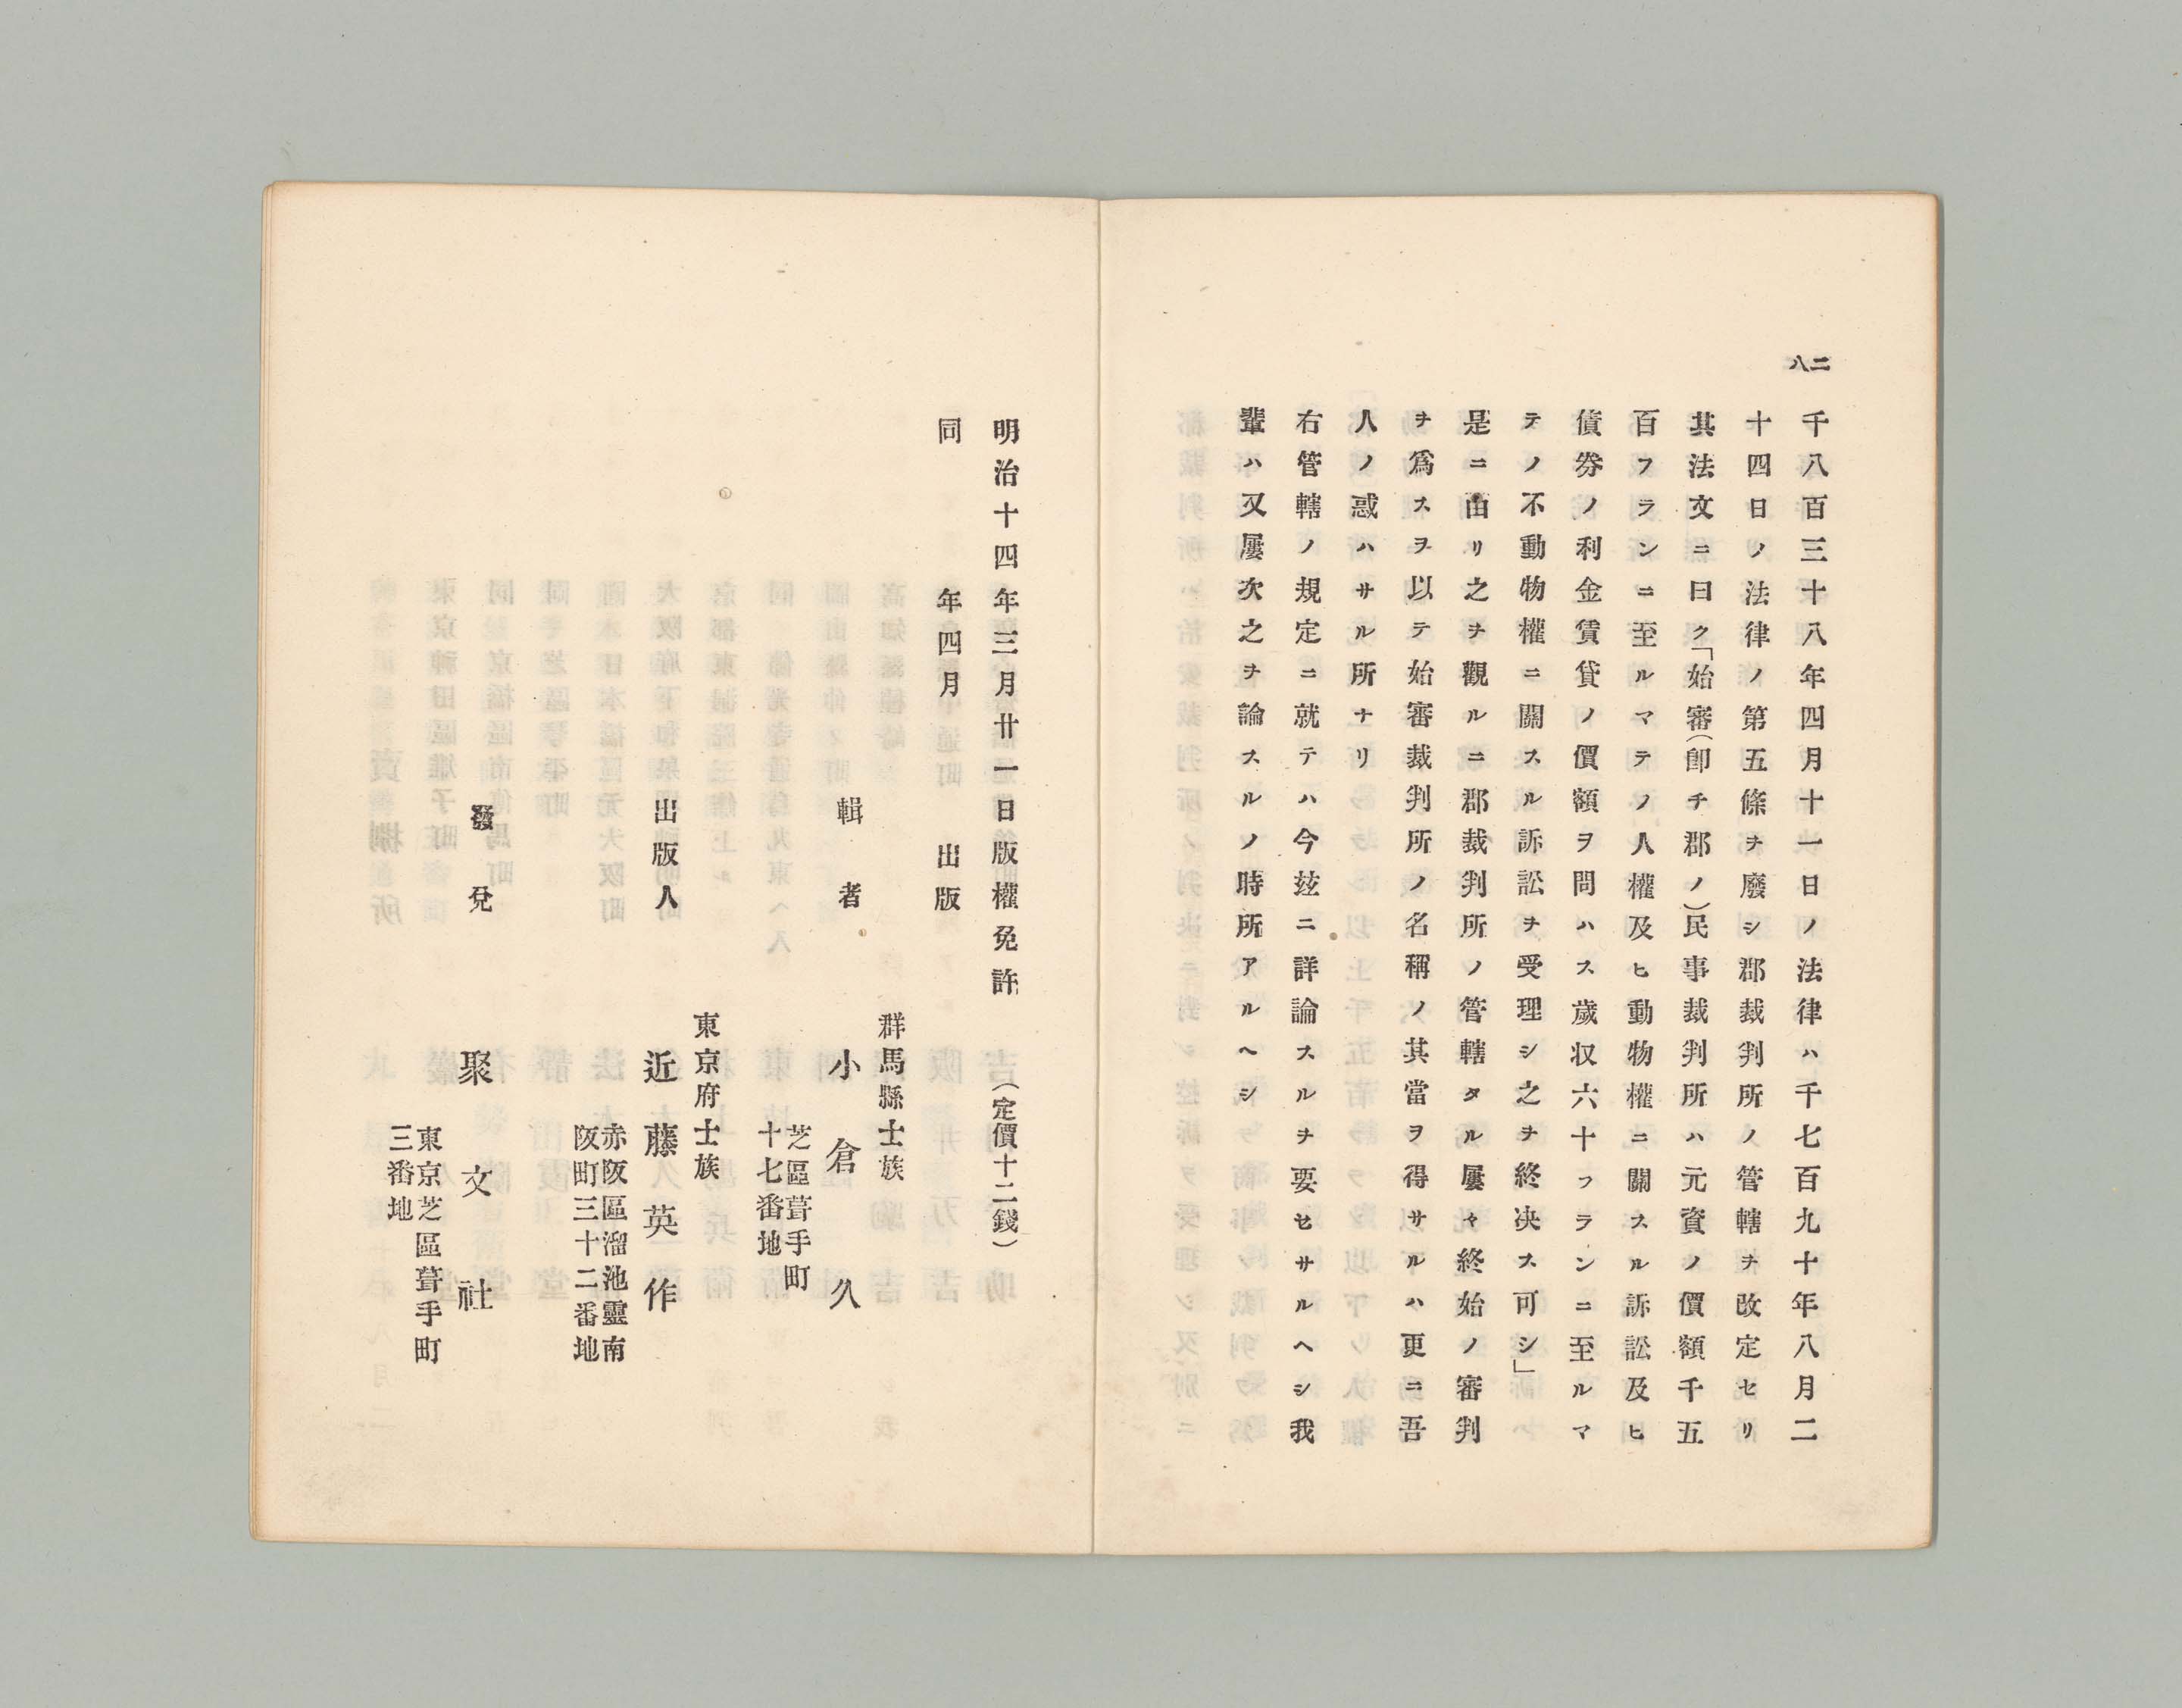 八二
千八百三十八年四月十一日ノ法律ハ千七百九十年八月二
十四日ノ法律ノ第五條ヲ廢シ郡裁判所ノ管轄ヲ改定セリ
其法文ニ曰ク「始審(卽チ郡ノ)民事裁判所ハ元資ノ價額千五
百フランニ至ルマテノ人權及ヒ動物權ニ關スル訴訟及ヒ
債券ノ利金賃貸ノ價額ヲ問ハス歲収六十フランニ至ルマ
テノ不動物權ニ關スル訴訟ヲ受理シ之ヲ終决ス可シ」
是ニ由リ之ヲ觀ルニ郡裁判所ノ管轄タル屢々終始ノ審判
ヲ爲スヲ以テ始審裁判所ノ名稱ノ其當ヲ得サルハ更ニ吾
人ノ惑ハサル所ナリ
右管轄ノ規定ニ就テハ今玆ニ詳論スルヲ要セサルヘシ我
輩ハ又屢次之ヲ論スルノ時所アルヘシ
明治十四年三月廿一日版權免許 (定價十二錢)
同 年四月 出版
群馬縣士族
輯者 小倉久
芝區葺手町
十七番地
東京府士族
出版人 近藤英作
赤阪區溜池靈南
阪町三十二番地
發兌 聚文社
東京芝區葺手町
三番地